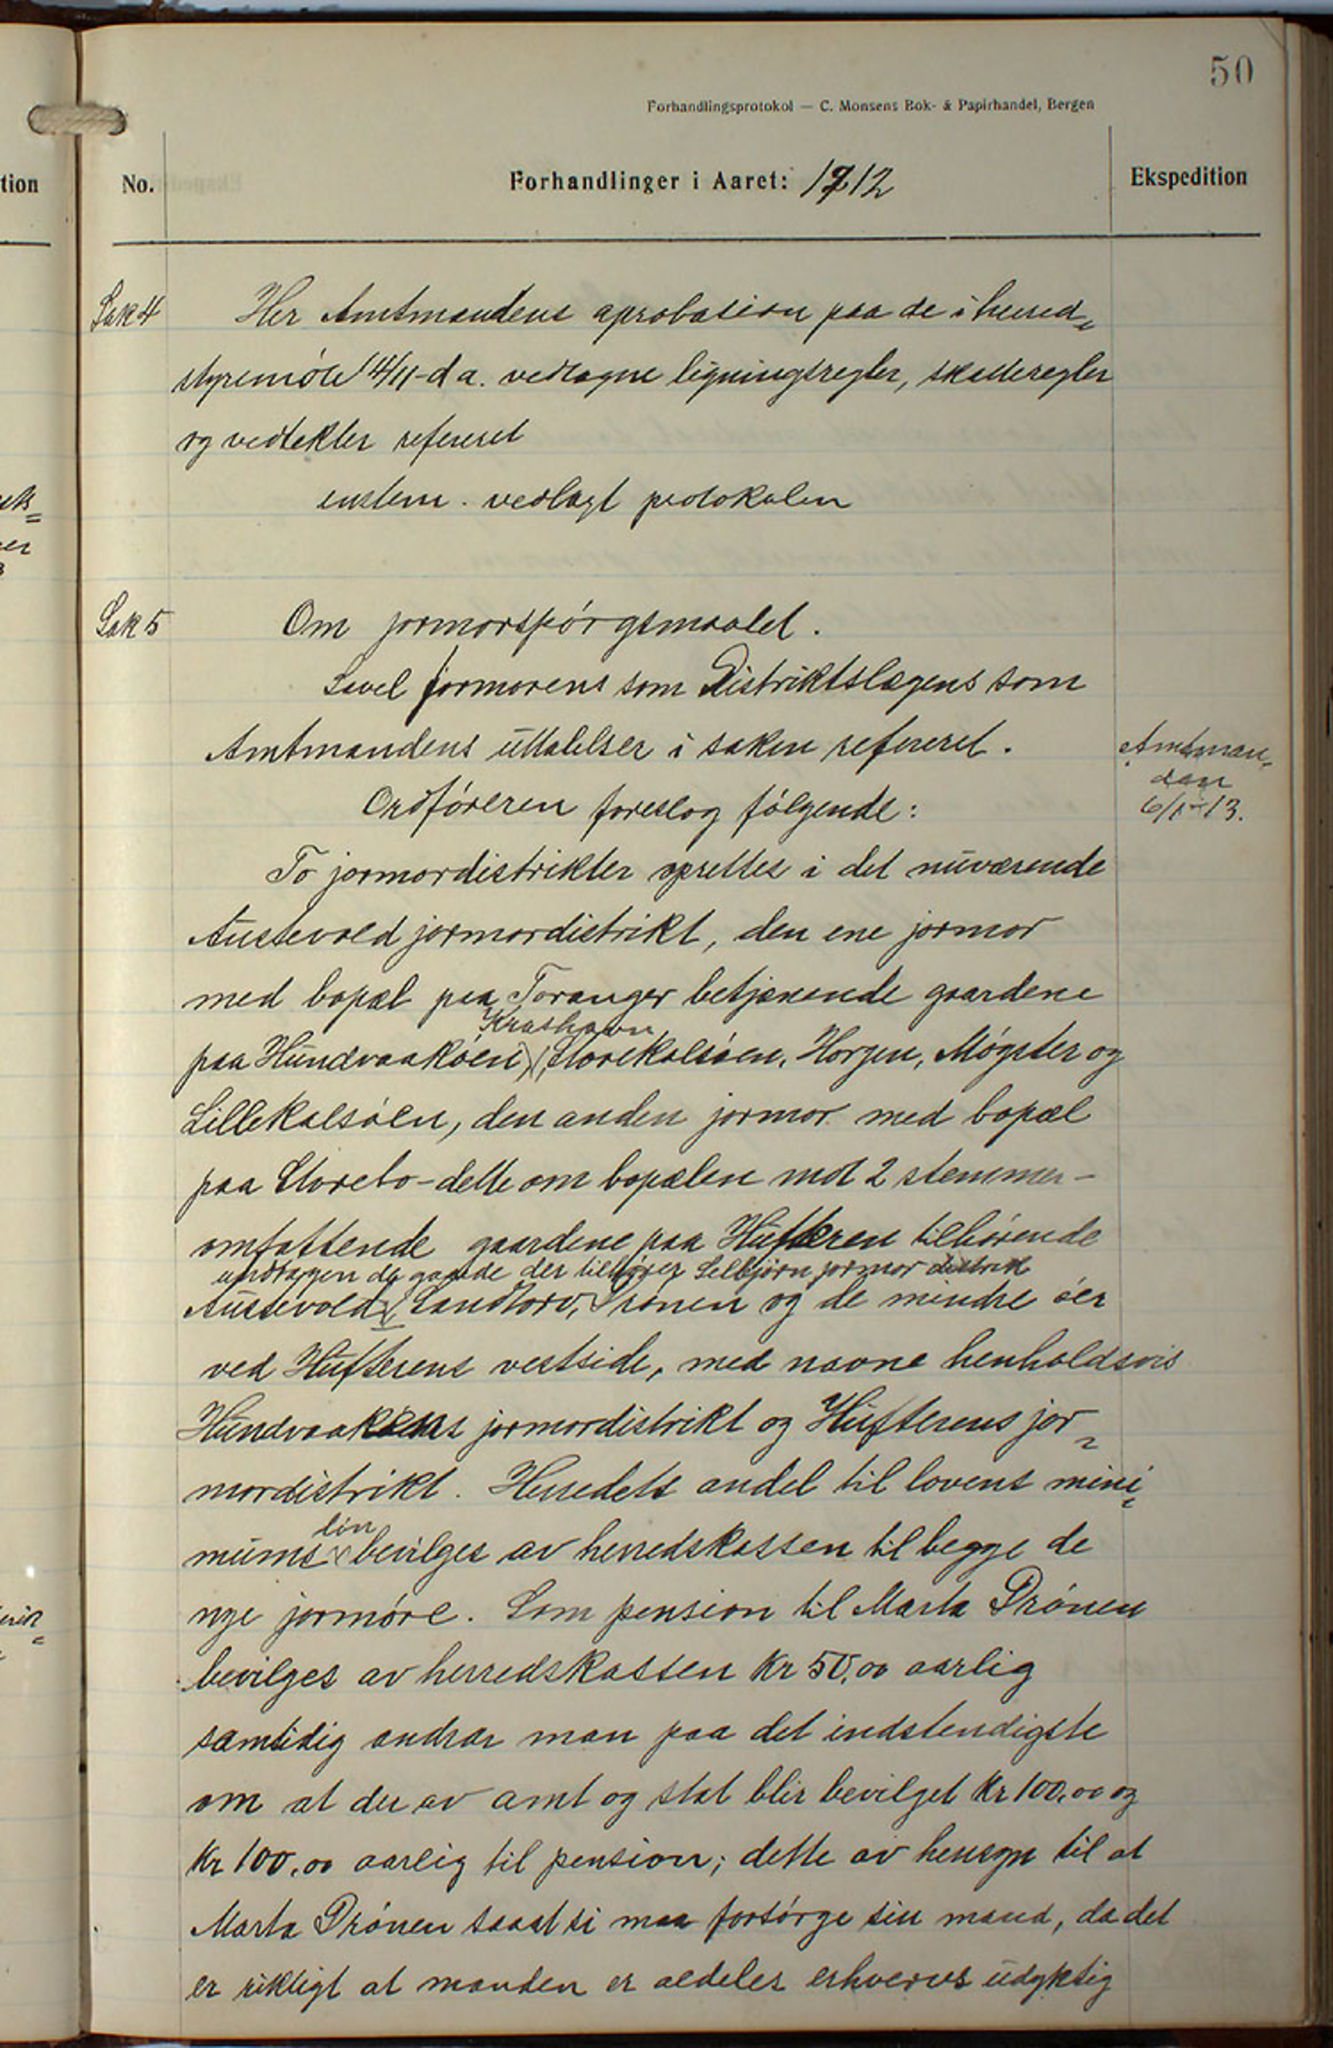 50
Forhandlingsprotokol — C. Monsens Bok- & Papirhandel, Bergen
tion
No.
Forhandlinger i Aaret: 1912
Ekspedition
Sak 4
Her Amtmandens aprobasion paa de i herred-
styremöte 14/11-d a. vedtagne ligningsregler, skatteregler
og vedtekter refereret
enstem. vedlagt protokolen
Sak 5
Om jormorspörgsmaalet.
Savel jormorens som Distriktslægens som
Amtmandens uttalelser i saken refereret.
Amtman-
den
6/1-13.
Ordföreren foreslog fölgende:
To jormordistrikter oprettes i det nuværende
Austevold jormordistrikt, den ene jormor
med bopæl paa Toranger betjenende gaardene
Krashavn
paa Hundvaaköen, Storekalsöen, Horgen, Mögster og
Lillekalsöen, den anden jormor med bopæl
paa Storebö - dette om bopælen mot 2 stemmer -
omfattende gaardene paa Hufteren tilhörende
undtagen de gaarde der tilhører Selbjørn jormor distrikt
Austevold, Sandtorv, Drönen og de mindre öer
ved Hufterens vestside, med navne henholdsvis
Hundvaaköens jormordistrikt og Hufterens jor-
mordistrikt. Herredets andel til lovens mini-
lön
mums bevilges av herredskassen til begge de
nye jormöre. Som pension til Marta Drönen
bevilges av herredskassen Kr 50,00 aarlig
samtidig andrar man paa det indstendigste
om at der av amt og stat blir bevilget Kr 100,00 og
Kr 100,00 aarlig til pension; dette av hensyn til at
Marta Drönen saa at si maa forsörge sin mand, da det
er riktigt at manden er aldeles erhvervs udyktig